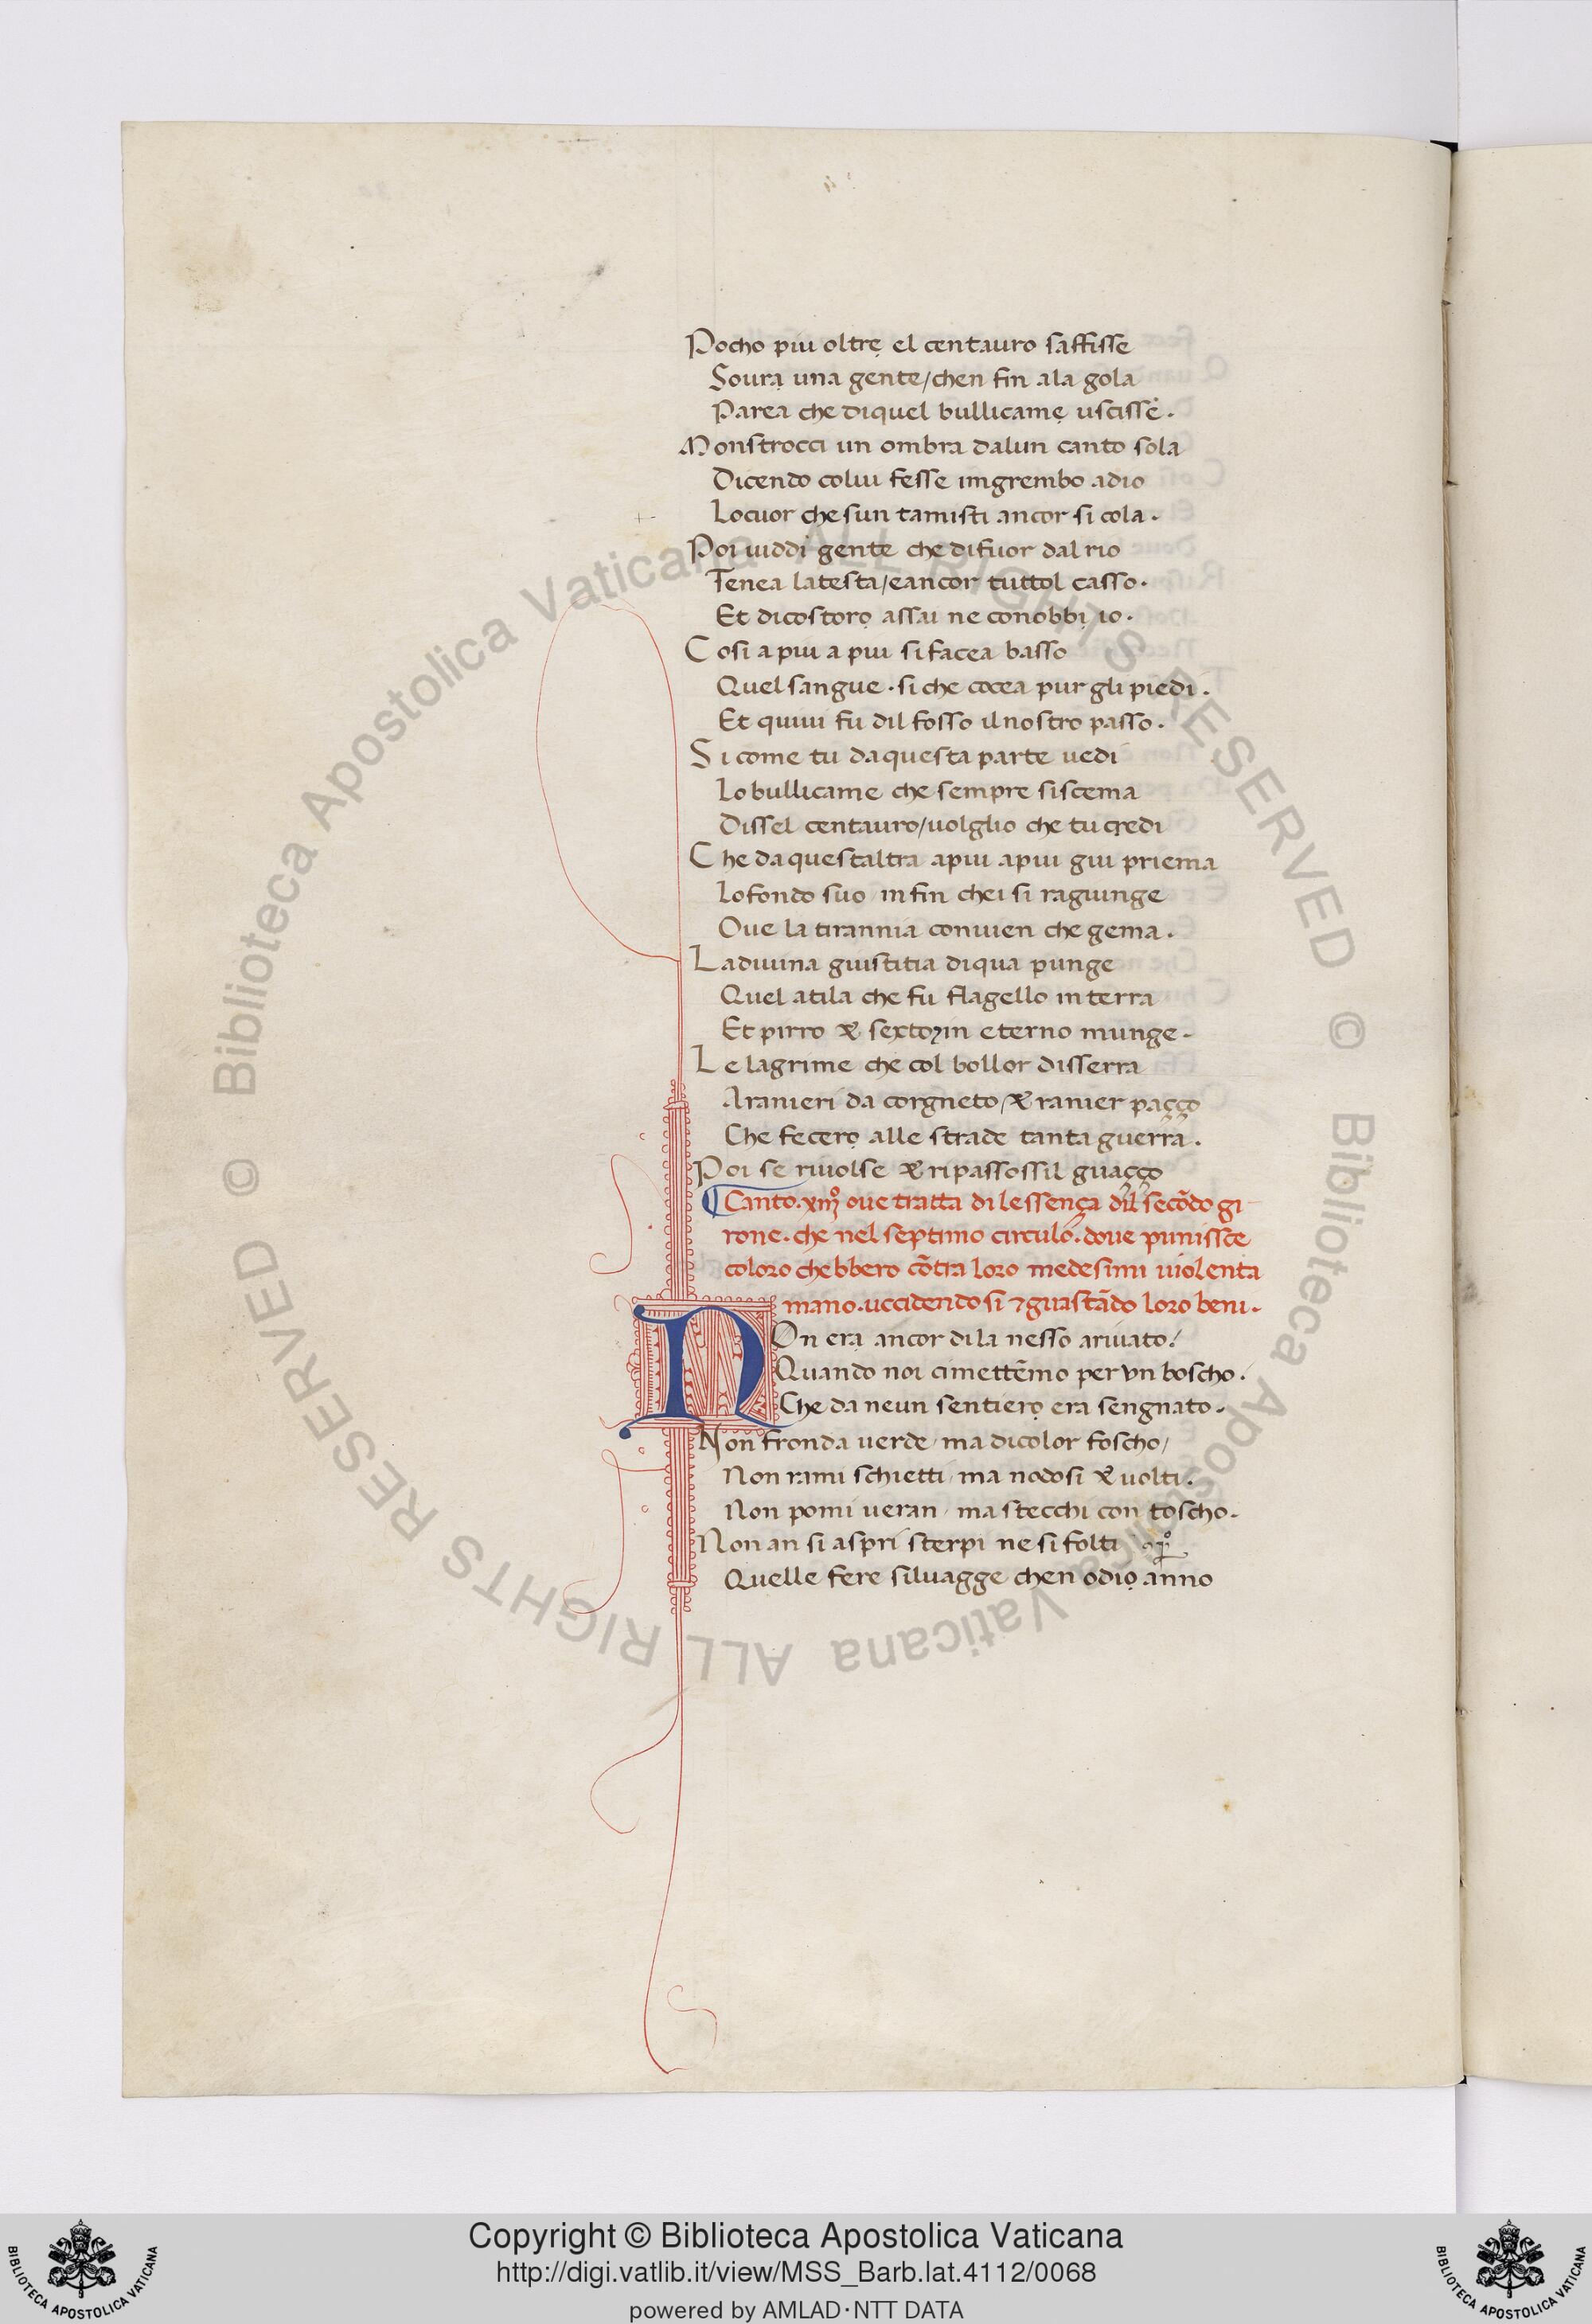 Pocho piu oltrẹ el centauro saffisse
Soura una gente/chen fin ala gola
Parea che diquel bullicamẹ uscisse.
Monstrocci un ombra dalun canto sola
Dicendo colui fesse imgrembo adio
Locuor che sun tamisti ancor si cola.
Poi uiddi gente che difuor dal rio
Tenea latesta/eancor tuttol casso.
Et dicostorọ assai ne conobbị io.
Cosi a piu a piu si facea basso
Quel sangue . si che cocea pur gli piedi.
Et quiui fu dil fosso il nostro passo.
Si come tu daquesta parte uedi
Lo bullicame che sempre siscema
Dissel centauro/uolglio che tu credi
Che daquestaltra apiu apiu giu priema
Lofondo suo infin chei si ragiunge
Oue la tirannia conuien che gema.
Ladiuina giustitia diqua punge
Quel atila che fu flagello interra
Et pirro & sexto⁊in eterno munge.
Le lagrime che col bollor disserra
Aranieri da corgneto/& ranier paçço
Che fecerọ alle strade tanta guerra.
Poi se riuolse & ripassossil guaçço
¶ Canto.xiijº oue tratta di lessença dil secōdo gi
rone. che nel septimo circulo. doue punissce
coloro chebbero cōtra loro medesimi uiolenta
mano.uccidendosi ⁊ guastādo loro beni.
NOn era ancor dila nesso ariuato/
Quando noi cimettēmo per vn boscho.
Che da neun sentierọ era sengnato.
Non fronda uerde/ma dicolor foscho/
Non rami schietti/ma nodosi & uolti.
Non pomi ueran/ma stecchi con toscho.
Non an si aspri sterpi ne si folti
Quelle fere siluagge chen odiọ anno
Copyright © Biblioteca Apostolica Vaticana
http://digi.vatlib.it/view/MSS_Barb.lat.4112/0068
powered by AMLAD·NTT DATA
BIBLIOTECA APOSTOLICA VATICANA
BIBLIOTECA APOSTOLICA VATICANA
© Biblioteca Apostolica Vaticana ALL RIGHTS RESERVED © Biblioteca Apostolica Vaticana ALL RIGHTS RESERVED